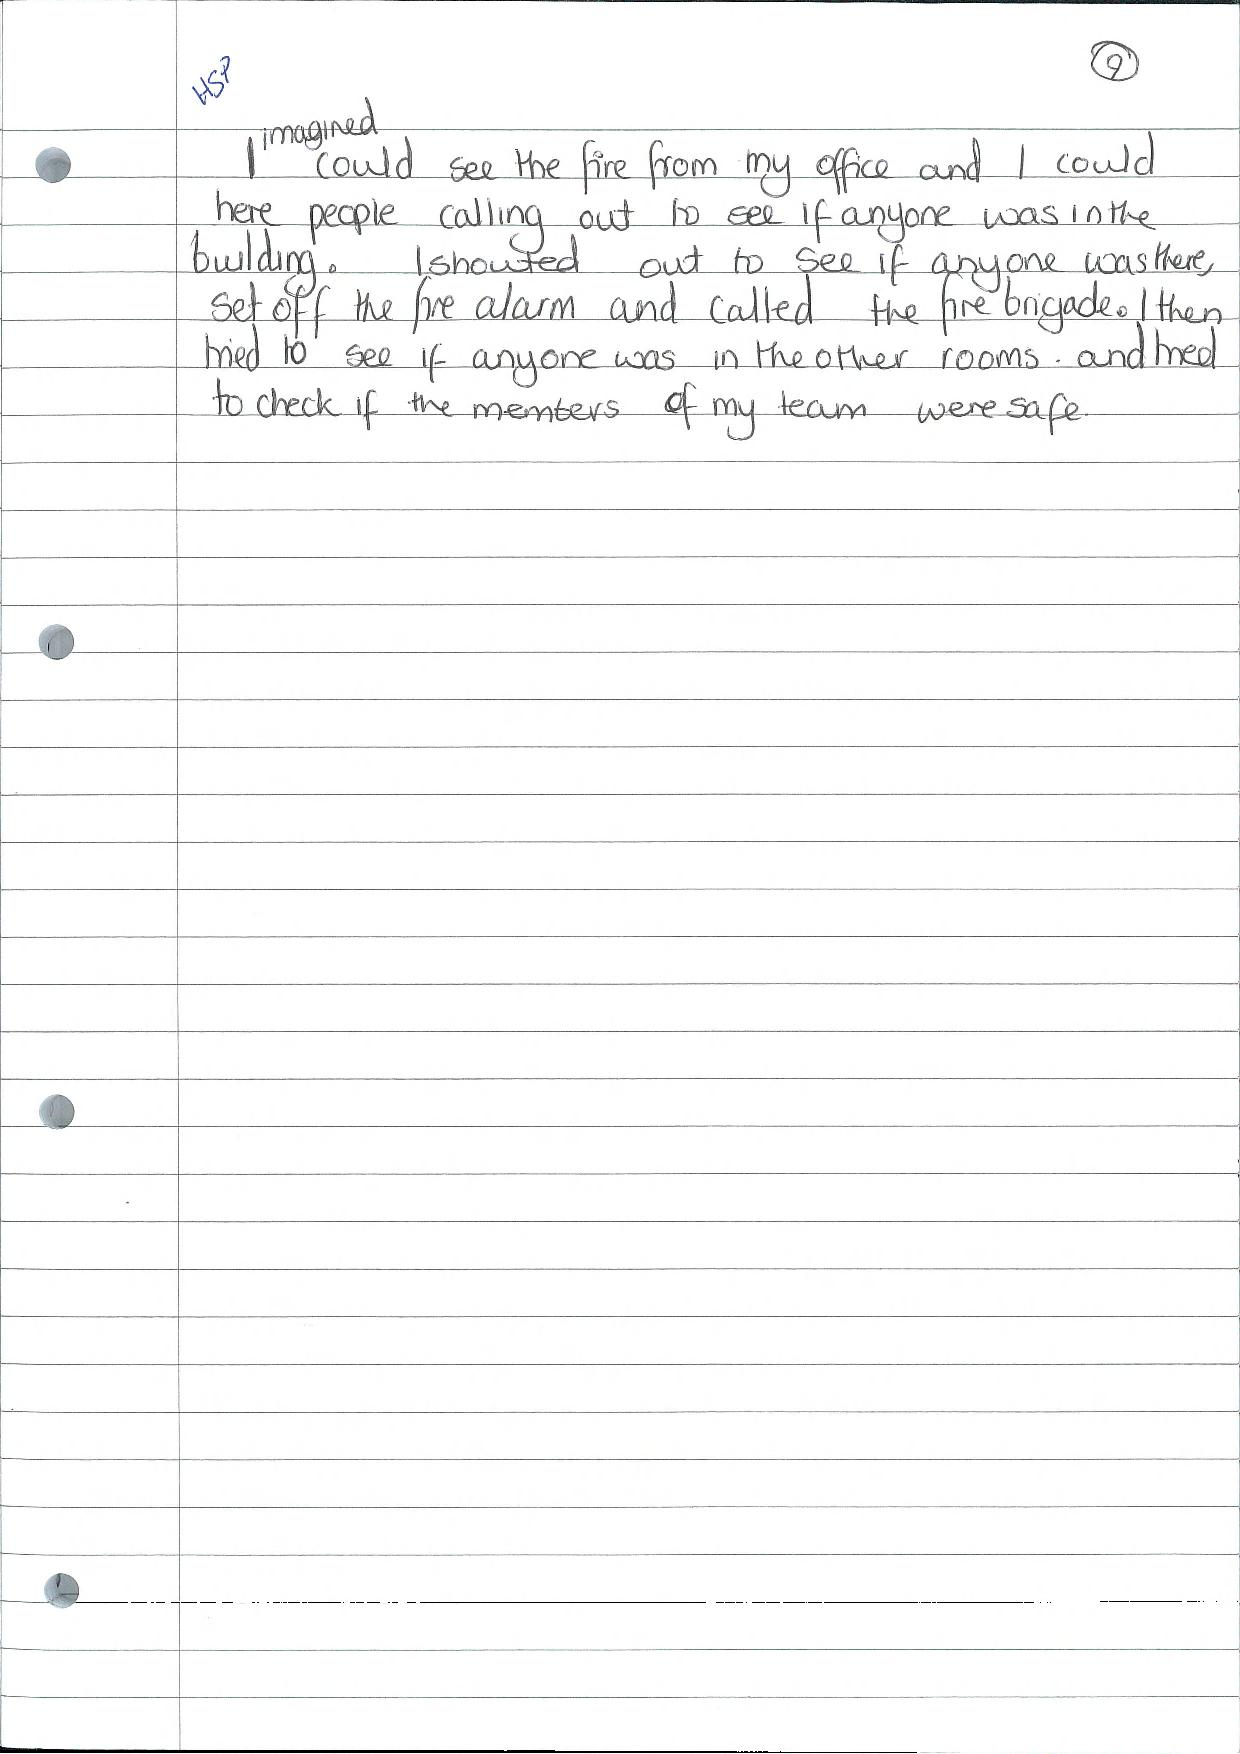 HSP
9
I imagined could see the fire from my office and I could
here people calling out to see if anyone was in the
building. I shouted out to see if anyone was there,
set off the fire alarm and called the fire brigade. I then
tried to see if anyone was in the other rooms. and tried
to check if the members of my team were safe.